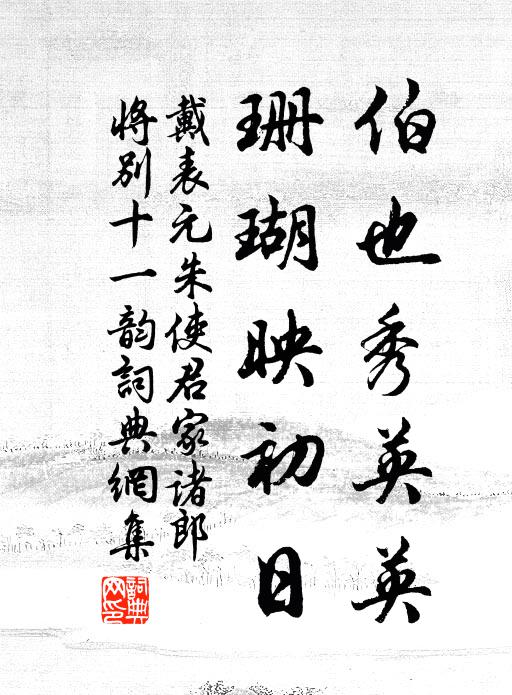 伯也秀英英
珊瑚映初日
戴表元朱使君家诸郎
将别十一韵词典网集
词典
网印